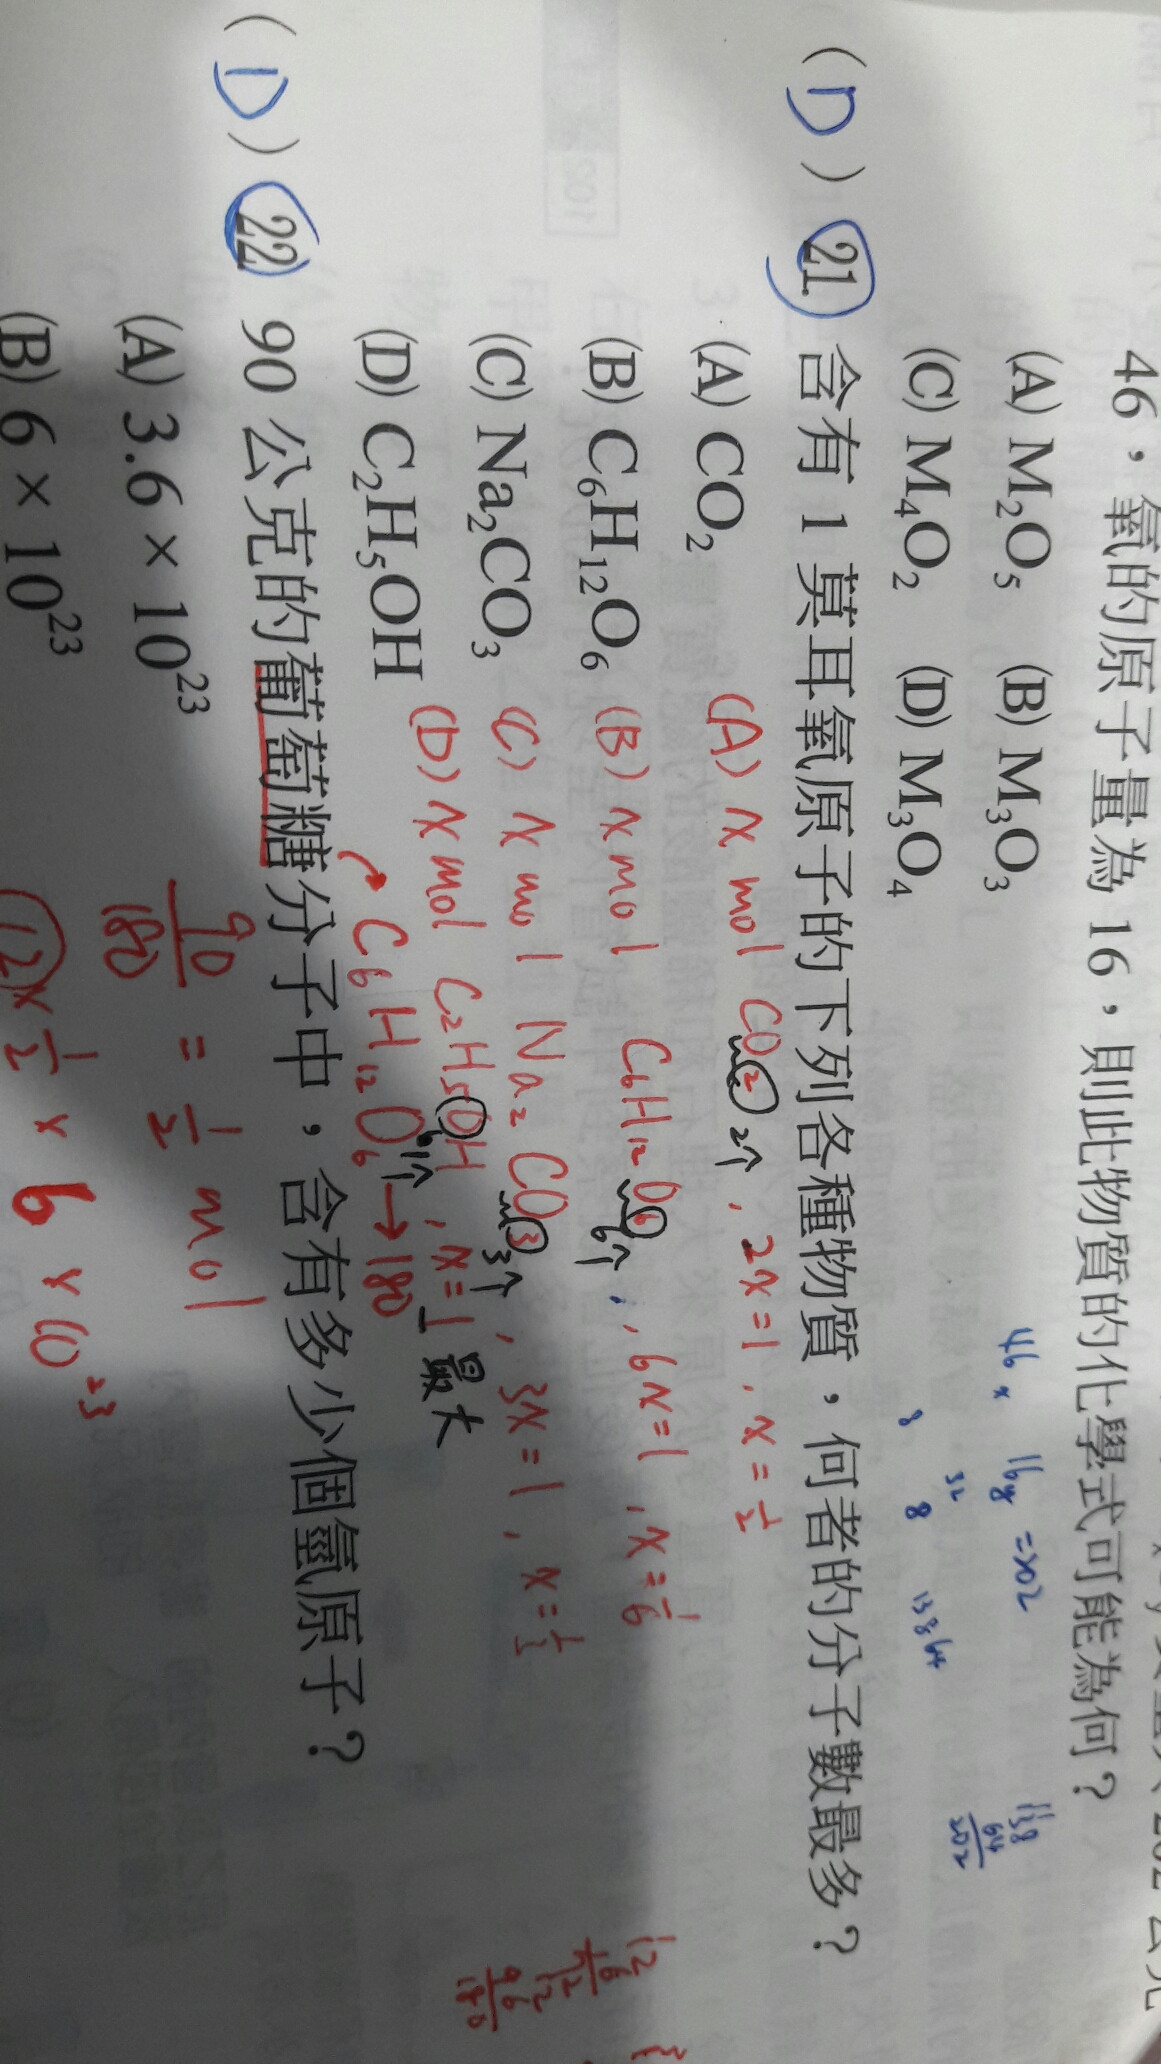 46，氧的原子量為 16，則此物質的化學式可能為何？
(A) M₂O₅ (B) M₃O₃
(C) M₄O₂ (D) M₃O₄
46x 16y =202
32
8 8 138 64
138
64
202
( D ) 21. 含有 1 莫耳氧原子的下列各種物質，何者的分子數最多？
(A) CO₂
(B) C₆H₁₂O₆
(C) Na₂CO₃
(D) C₂H₅OH
(A) x mol CO₂ 2个, 2x=1, x=1/2
(B) x mol C₆H₁₂O₆ 6个, 6x=1, x=1/6
(C) x mol Na₂CO₃ 3个, 3x=1, x=1/3
(D) x mol C₂H₅OH 1个, x=1 最大
12
6
72
12
96
180
( D ) 22. 90 公克的葡萄糖分子中，含有多少個氫原子？
C₆H₁₂O₆ → 180
(A) 3.6 × 10²³
(B) 6 × 10²³
90/180 = 1/2 mol
12 × 1/2 × 6 × 10²³